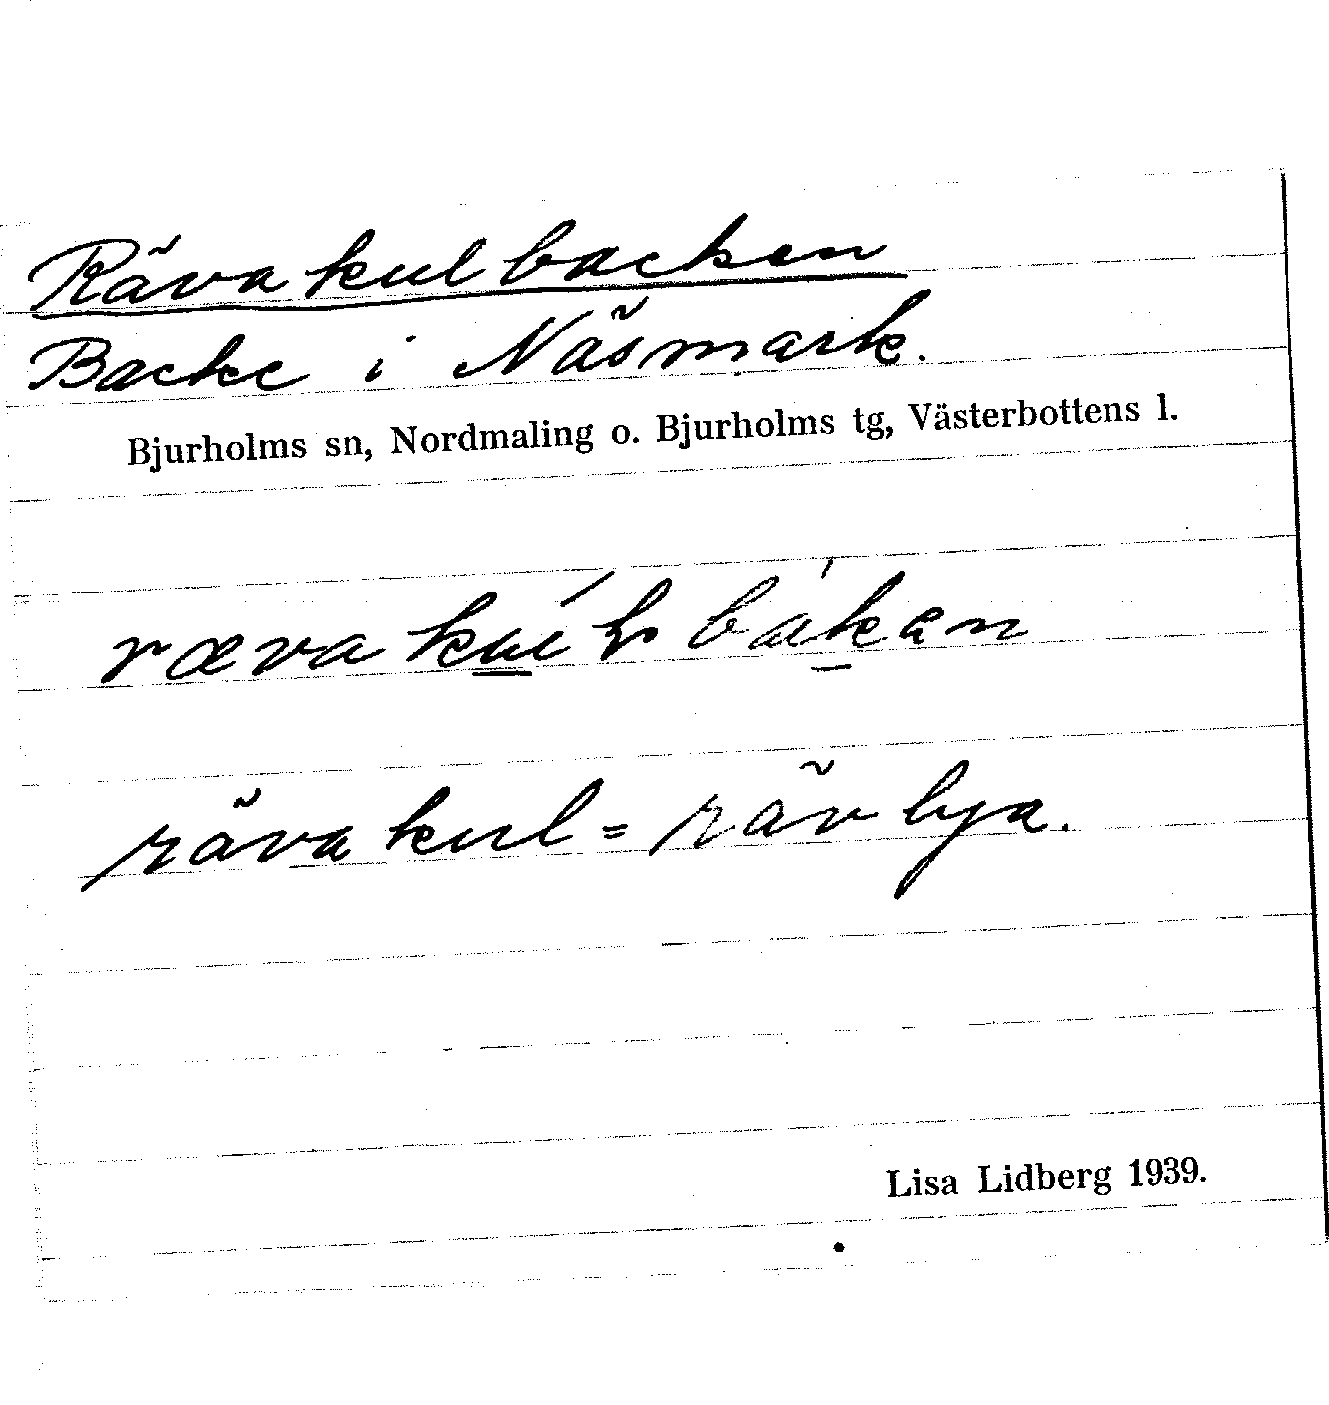 Rävakulbacken
Backe i Näsmark.
Bjurholms sn, Nordmaling o. Bjurholms tg, Västerbottens l.
rävakul = rävlya.
Lisa Lidberg 1939.